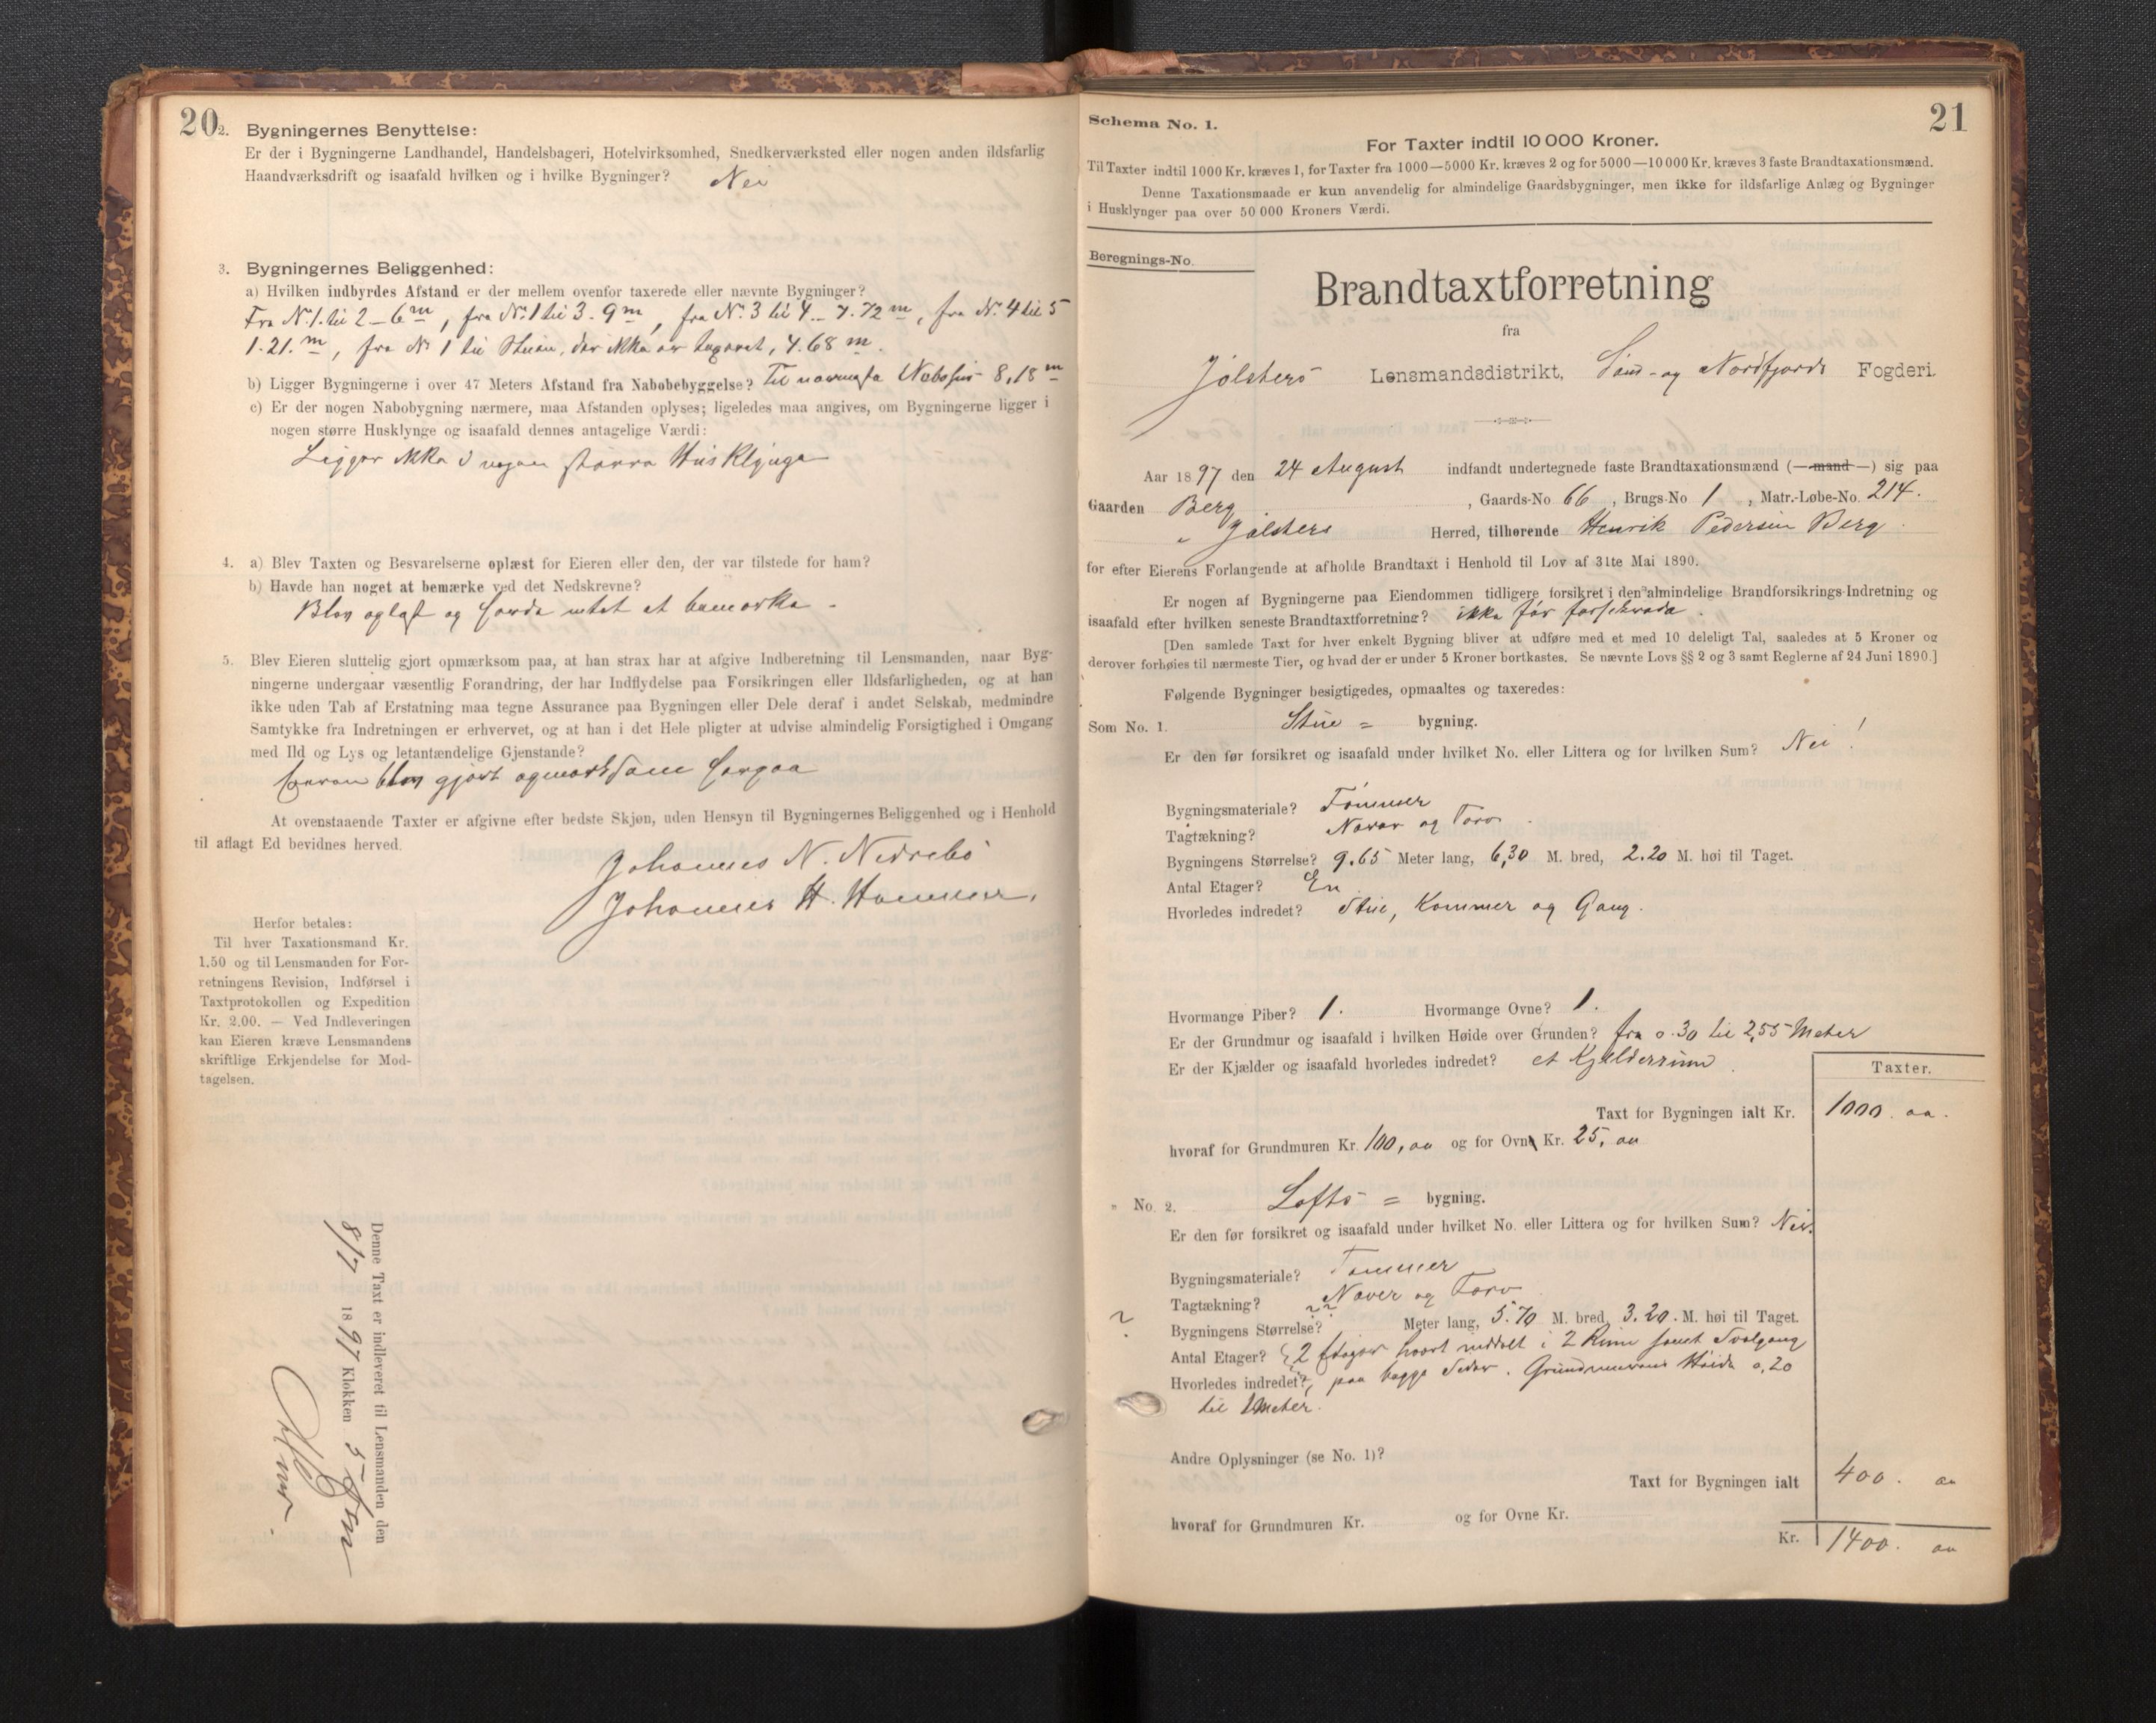 20
2. Bygningernes Benyttelse:
Er der i Bygningerne Landhandel, Handelsbageri, Hotelvirksomhed, Snedkerværksted eller nogen anden ildsfarlig
Haandværksdrift og isaafald hvilken og i hvilke Bygninger? Nei
3. Bygningernes Beliggenhed:
a) Hvilken indbyrdes Afstand er der mellem ovenfor taxerede eller nævnte Bygninger?
Fra No. 1. til 2 – 6 m, fra No. 1 til 3 - 9 m, fra No. 3 til 4 – 7.72 m, fra No. 4 til 5
1.21. m, fra No 1 til Stuen, der ikke er taxeret, 4.68 m.
b) Ligger Bygningerne i over 47 Meters Afstand fra Nabobebyggelse? Til nærmeste Nabohus 8,18 m
c) Er der nogen Nabobygning nærmere, maa Afstanden oplyses; ligeledes maa angives, om Bygningerne ligger i
nogen større Husklynge og isaafald dennes antagelige Værdi:
Ligger ikke i nogen større Husklynge
4. a) Blev Taxten og Besvarelserne oplæst for Eieren eller den, der var tilstede for ham?
b) Havde han noget at bemærke ved det Nedskrevne?
Blev oplæst og havde intet at bemærke -
5. Blev Eieren sluttelig gjort opmærksom paa, at han strax har at afgive Indberetning til Lensmanden, naar Byg-
ningerne undergaar væsentlig Forandring, der har Indflydelse paa Forsikringen eller Ildsfarligheden, og at han
ikke uden Tab af Erstatning maa tegne Assurance paa Bygningen eller Dele deraf i andet Selskab, medmindre
Samtykke fra Indretningen er erhvervet, og at han i det Hele pligter at udvise almindelig Forsigtighed i Omgang
med Ild og Lys og letantændelige Gjenstande?
Eieren blev gjort opmærksom herpaa
At ovenstaaende Taxter er afgivne efter bedste Skjøn, uden Hensyn til Bygningernes Beliggenhed og i Henhold
til aflagt Ed bevidnes herved.
Johannes N. Nedrebö
Johannes H.
Herfor betales:
Til hver Taxationsmand Kr.
1.50 og til Lensmanden for For-
retningens Revision, Indførsel i
Taxtprotokollen og Expedition
Kr. 2.00. — Ved Indleveringen
kan Eieren kræve Lensmandens
skriftlige Erkjendelse for Mod-
tagelsen.
Denne Taxt er indleveret til Lensmanden den
8/7 1897 Klokken 5
21
Schema No. 1.
For Taxter indtil 10 000 Kroner.
Til Taxter indtil 1000 Kr. kræves 1, for Taxter fra 1000—5000 Kr. kræves 2 og for 5000—10 000 Kr. kræves 3 faste Brandtaxationsmænd.
Denne Taxationsmaade er kun anvendelig for almindelige Gaardsbygninger, men ikke for ildsfarlige Anlæg og Bygninger
i Husklynger paa over 50 000 Kroners Værdi.
Beregnings-No.
Brandtaxtforretning
fra
Jølsters Lensmandsdistrikt, Sönd- og Nordfjords Fogderi.
Aar 1897 den 24 August indfandt undertegnede faste Brandtaxationsmænd (—mand—) sig paa
Gaarden Berg, Gaards-No 66, Brugs-No 1, Matr.-Løbe-No. 214.
i Jølsters Herred, tilhørende Henrik Pedersen Berg.
for efter Eierens Forlangende at afholde Brandtaxt i Henhold til Lov af 31te Mai 1890.
Er nogen af Bygningerne paa Eiendommen tidligere forsikret i den almindelige Brandforsikrings-Indretning og
isaafald efter hvilken seneste Brandtaxtforretning? ikke før forsikrede.
[Den samlede Taxt for hver enkelt Bygning bliver at udføre med et med 10 deleligt Tal, saaledes at 5 Kroner og
derover forhøies til nærmeste Tier, og hvad der er under 5 Kroner bortkastes. Se nævnte Lovs §§ 2 og 3 samt Reglerne af 24 Juni 1890.]
Følgende Bygninger besigtigedes, opmaaltes og taxeredes:
Som No. 1. Stue = bygning.
Er den før forsikret og isaafald under hvilket No. eller Littera og for hvilken Sum? Nei!
Bygningsmateriale? Tømmer
Tagtækning? Næver og Torv.
Bygningens Størrelse? 9.65 Meter lang, 6,30 M. bred, 2.20 M. høi til Taget.
Antal Etager? En
Hvorledes indredet? Stue, Kammer og Gang.
Hvormange Piber? 1. Hvormange Ovne? 1.
Er der Grundmur og isaafald i hvilken Høide over Grunden? fra 0.30 til 2,55 Meter
Er der Kjælder og isaafald hvorledes indredet? et Kjelderrum.
Taxter.
Taxt for Bygningen ialt Kr. 1000. oo.
hvoraf for Grundmuren Kr. 100, oo og for Ovne Kr. 25, oo
" No. 2. Lofts = bygning.
Er den før forsikret og isaafald under hvilket No. eller Littera og for hvilken Sum? Nei.
Bygningsmateriale? Tømmer
Tagtækning? Næver og Torv
Bygningens Størrelse? ?? Meter lang, 5.70 M. bred, 3.20. M. høi til Taget.
Antal Etager? 2 Etager hvert inddelt i 2 Rum samt Svalgang
Hvorledes indredet? paa begge Sider. Grundmurens Høide 0,20
til 1 Meter.
Andre Oplysninger (se No. 1)?
Taxt for Bygningen ialt 400. oo
hvoraf for Grundmuren Kr. og for Ovne Kr.
Kr. 1400. oo